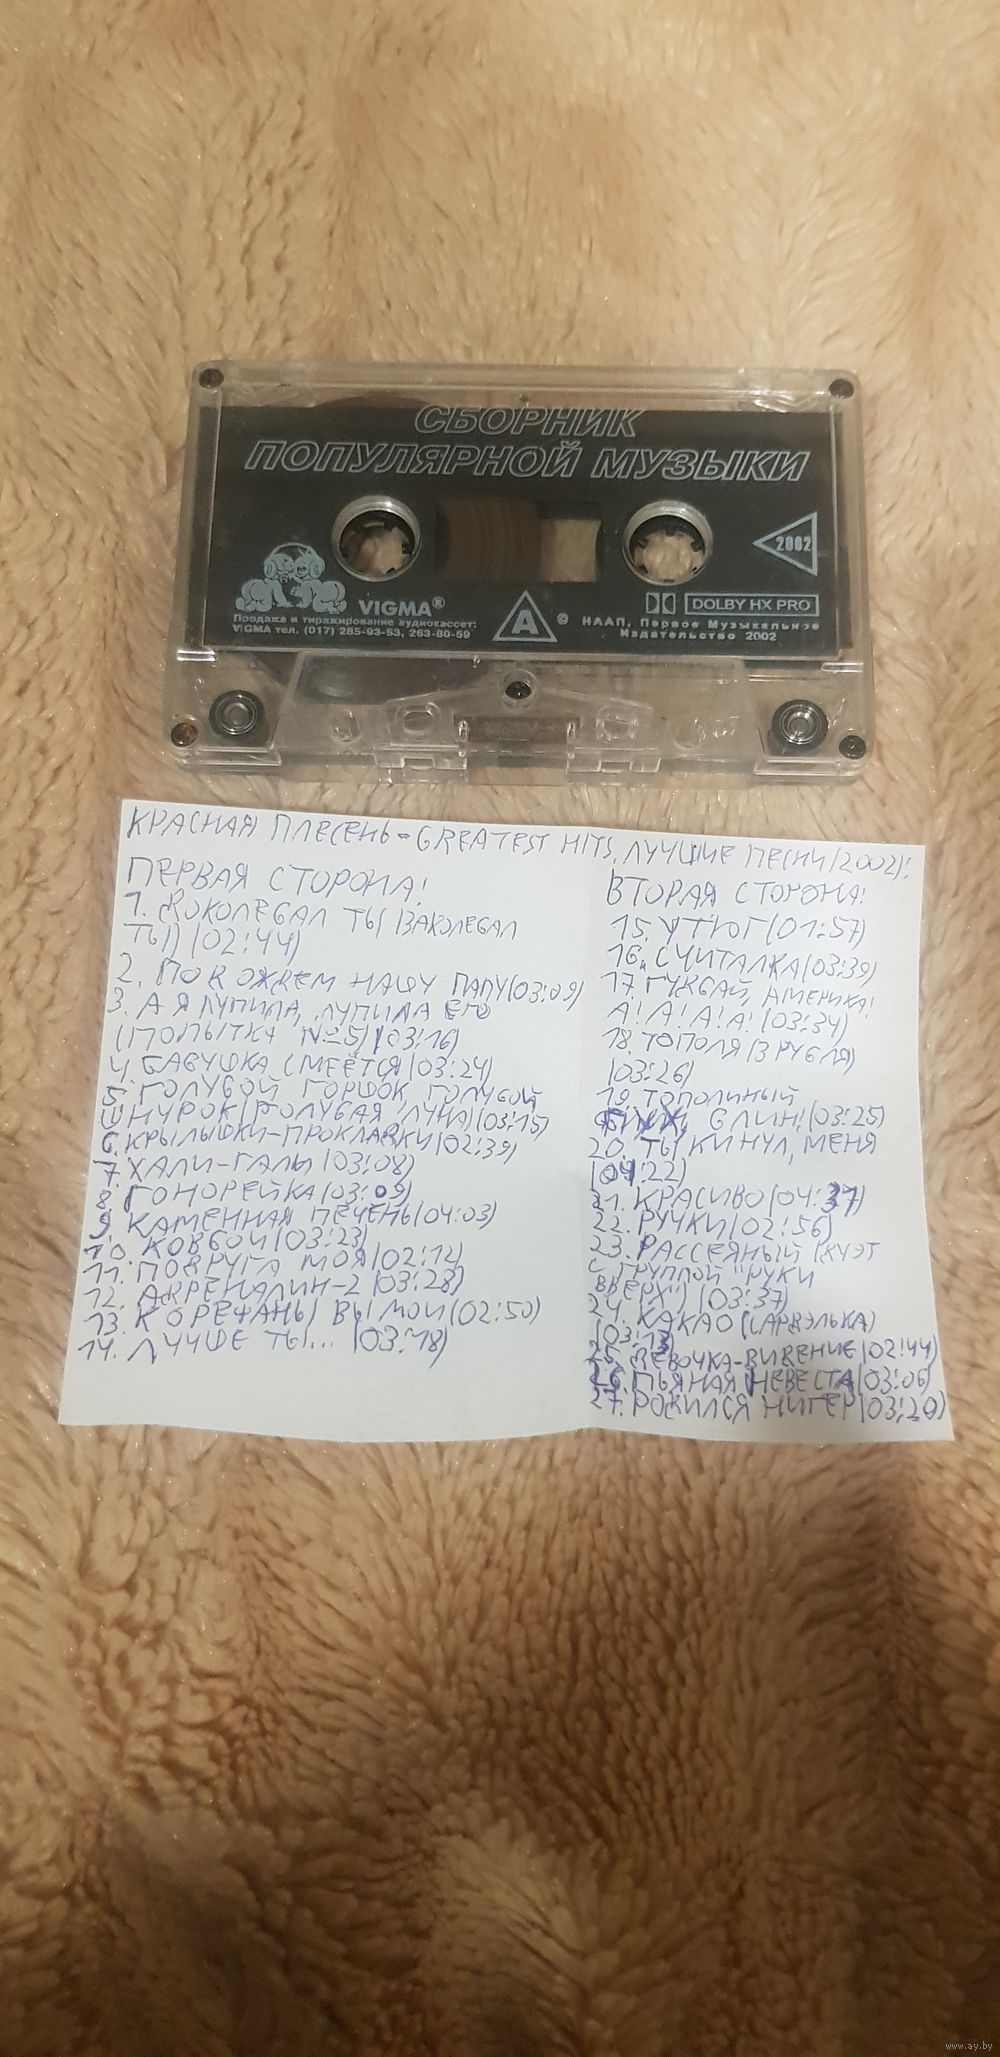 СБОРНИК
ПОПУЛЯРНОЙ МУЗЫКИ
2002
VIGMA®
Продажа и тиражирование аудиокассет:
VIGMA тел. (017) 285-93-53, 263-80-59
A
DOLBY HX PRO
© НААП, Первое Музыкальное
Издательство 2002
КРАСНАЯ ПЛЕСЕНЬ - GREATEST HITS. ЛУЧШИЕ ПЕСНИ (2002)!
ПЕРВАЯ СТОРОНА!
1. ЯКОКОЛЕБАЛ ТЫ (ЗАКОЛЕБАЛ
ТЫ) (02:44)
2. ПОДОЖДЕМ НАШУ ПАПУ (03:09)
3. А Я ЛУПИЛА, ЛУПИЛА ЕГО
(ПОПЫТКА №5) (03:16)
4. БАБУШКА СМЕЁТСЯ (03:24)
5. ГОЛУБОЙ ГОРШОК, ГОЛУБОЙ
ШНУРОК (ГОЛУБАЯ ЛУНА) (03:15)
6. КРЫЛЫШКИ-ПРОКЛАДКИ (02:39)
7. ХАЛИ-ГАЛИ (03:08)
8. ГОНОРЕЙКА (03:09)
9. КАМЕННАЯ ПЕЧЕНЬ (04:03)
10. КОВБОИ (03:23)
11. ПОДРУГА МОЯ (02:12)
12. АДРЕНАЛИН-2 (03:28)
13. КОРЕФАНЫ ВЫ МОИ (02:50)
14. ЛУЧШЕ ТЫ... (03:18)
ВТОРАЯ СТОРОНА!
15. УТЮГ (01:57)
16. СЧИТАЛКА (03:39)
17. ГУДБАЙ, АМЕРИКА!
А! А! А! А! (03:34)
18. ТОПОЛЯ (3 РУБЛЯ)
(03:26)
19. ТОПОЛИНЫЙ
БЛИН! (03:25)
20. ТЫ КИНУЛ, МЕНЯ
(04:22)
21. КРАСИВО (04:37)
22. РУЧКИ (02:56)
23. РАССЕЯНЫЙ (ДУЭТ
С ГРУППОЙ "РУКИ
ВВЕРХ") (03:37)
24. КАКАО (САРДЭЛЬКА)
(03:13)
25. ДЕВОЧКА-ВИДЕНИЕ (02:44)
26. ПЬЯНАЯ НЕВЕСТА (03:06)
27. РОДИЛСЯ НИГЕР (03:20)
www.ay.by